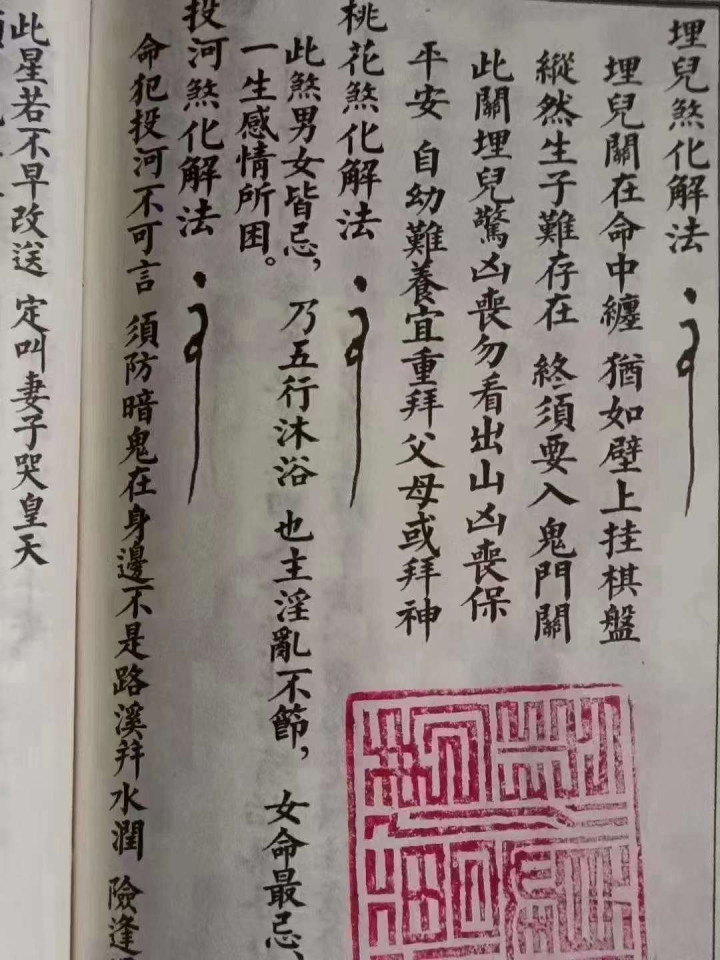 埋兒煞化解法
埋兒關在命中纏 猶如壁上挂棋盤
縱然生子難存在 終須要入鬼門關
此關埋兒驚凶喪勿看出山凶喪保
平安 自幼難養宜重拜父母或拜神
桃花煞化解法
此煞男女皆忌， 乃五行沐浴 也主淫亂不節， 女命最忌、
一生感情所困。
投河煞化解法
命犯投河不可言 須防暗鬼在身邊不是路溪拜水潤 險逢
此星若不早改送 定叫妻子哭皇天